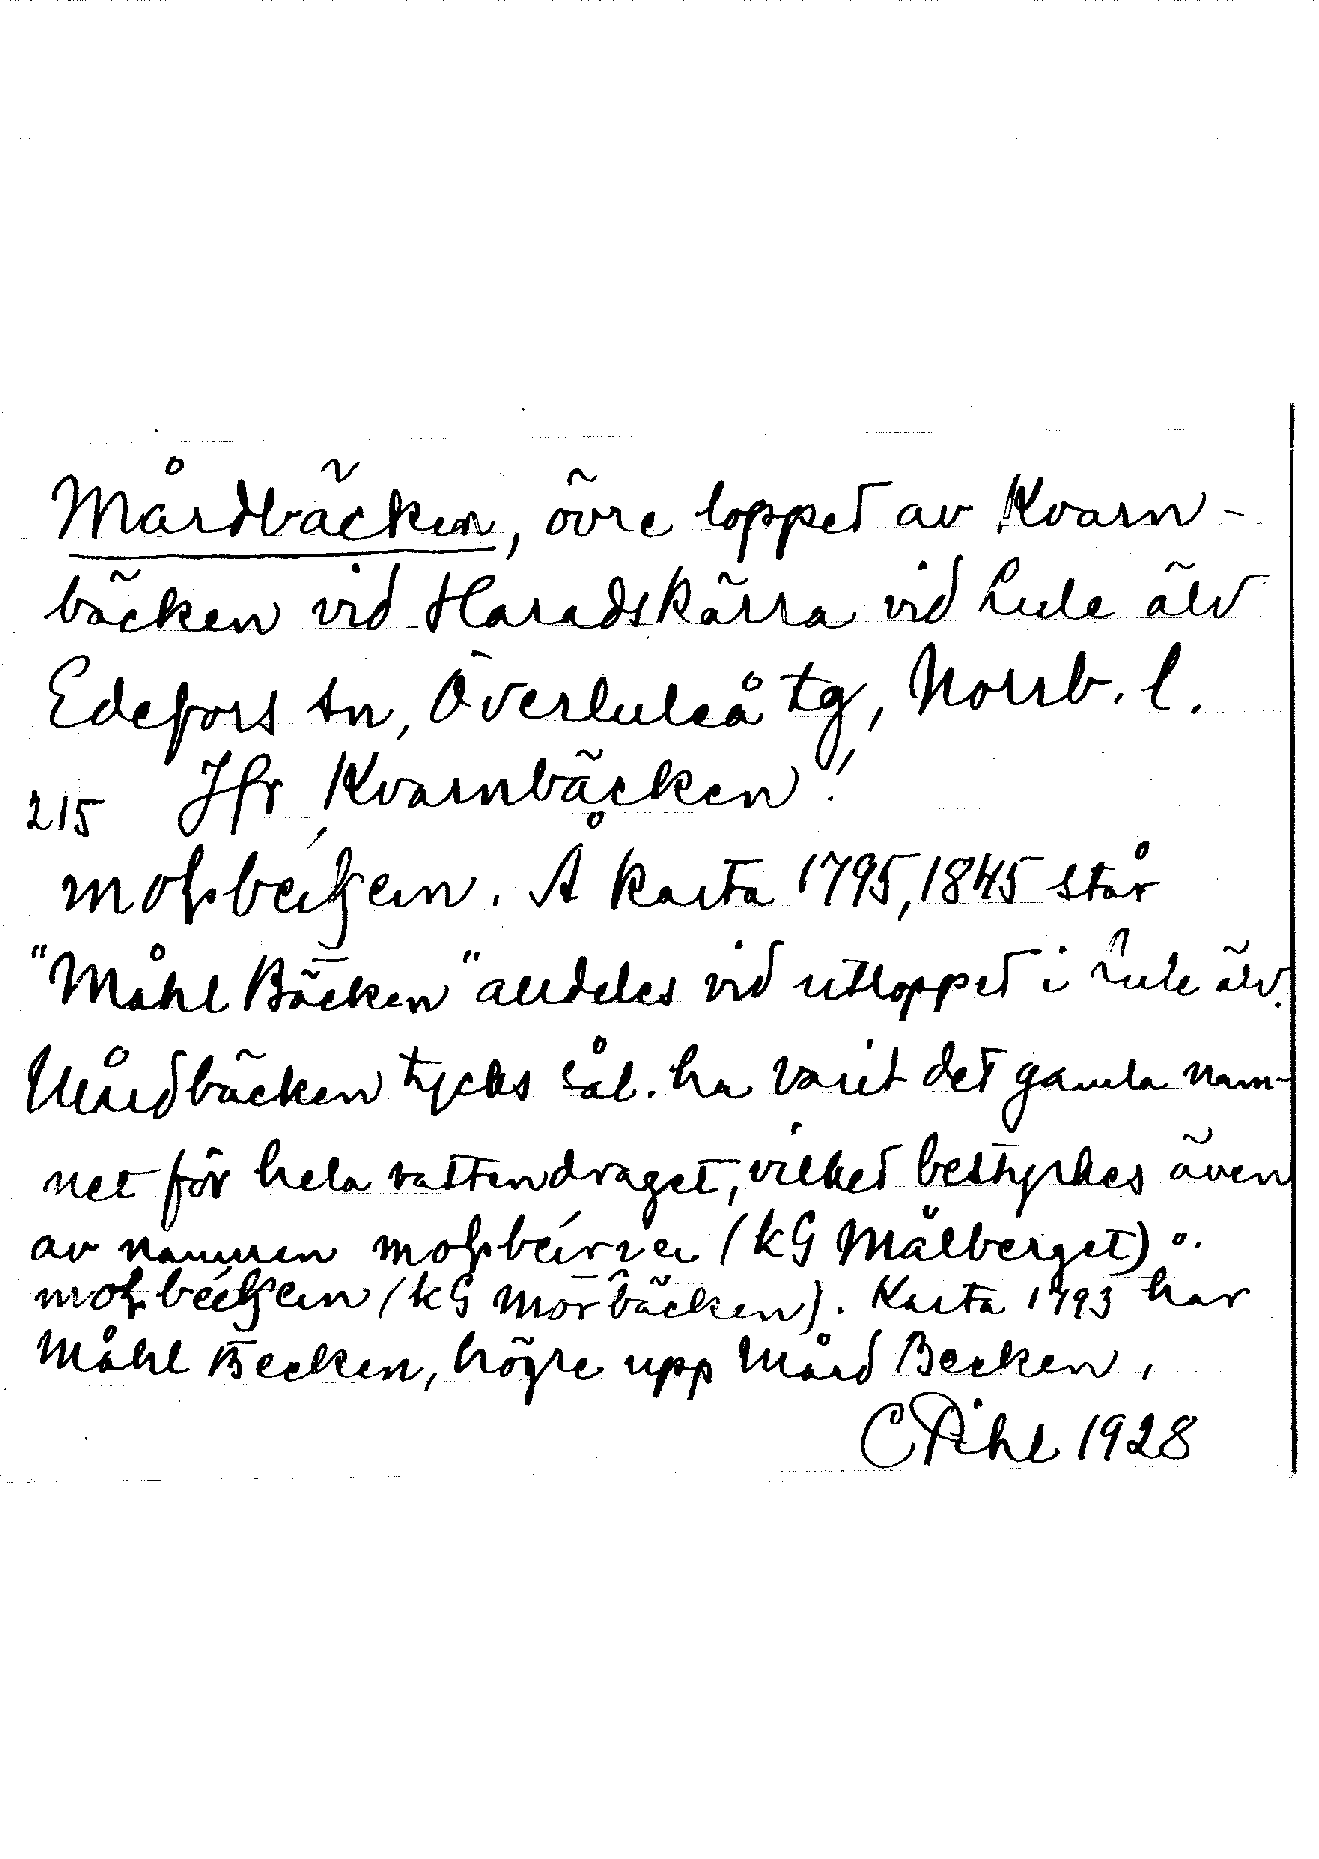 Mårdbäcken, övre loppet av Kvarn-
bäcken vid Haradskärra vid Lule älv
Edefors sn, Överluleå tg, Norrb. l.
215 Jfr Kvarnbäcken!
Å karta 1795, 1845 står
"Måhl Bäcken" alldeles vid utloppet i Lule älv.
Mårdbäcken tycks sål. ha varit det gamla nam-
net för hela vattendraget, vilket bestyrkes även
av namnen (kG Målberget) o.
(kG Mörbäcken). Karta 1793 har
Måhl Becken, högre upp Mård Becken.
C Pihl 1928